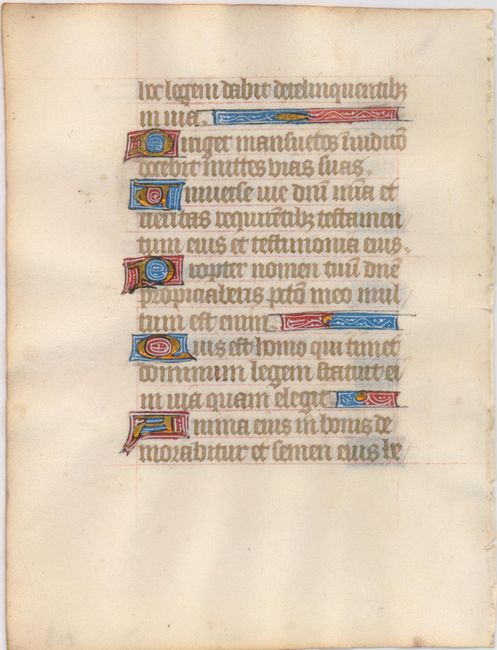 hoc legem dabit delinquentibꝫ
in via.
Diriget mansuetos ĩ iudicō
docebit mittes vias suas.
Universe vie dnī mīa et
veritas requirētibꝫ testamen
tum eius et testimonia eius.
Propter nomen tuū dnē
propiciaberis pctō meo mul
tum est enim.
Quis est homo qui timet
dominum legem statuit ei
in via quam elegit.
Anima eius in bonis de
morabitur et semen eius he